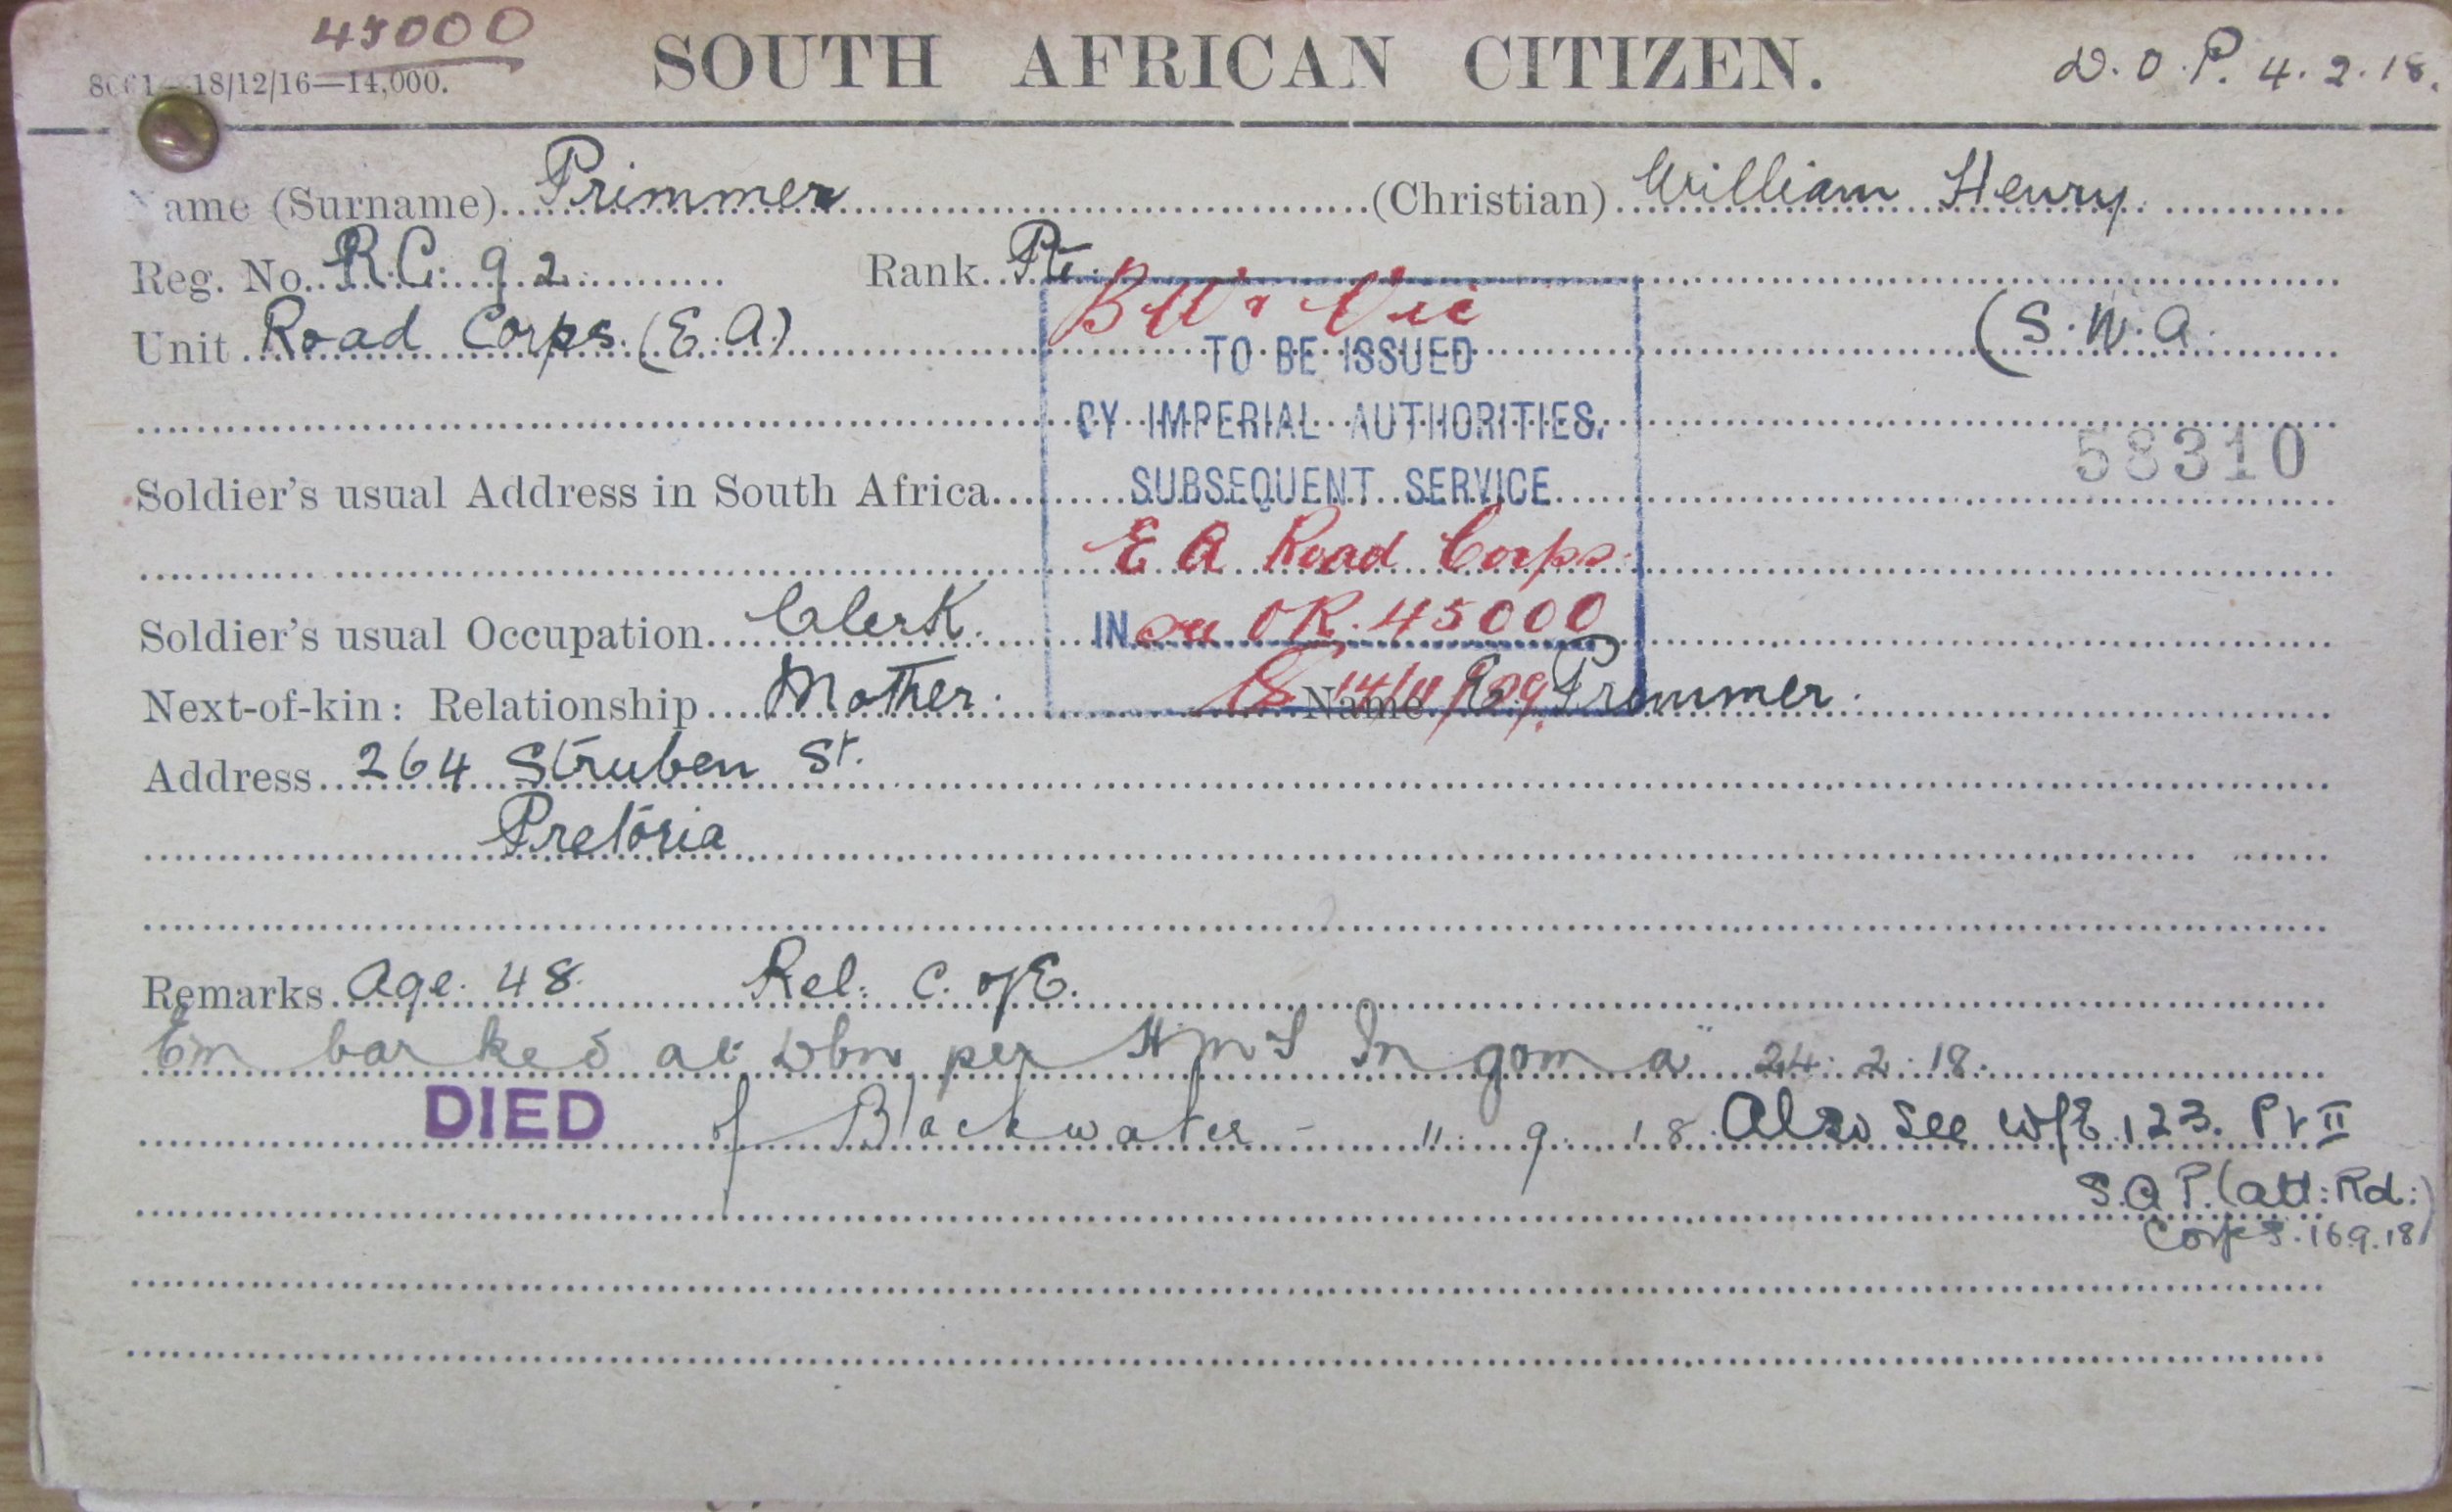 45000
18/12/16—14,000.
SOUTH AFRICAN CITIZEN.
D.O.P. 4.2.18.
Name (Surname) Primmer (Christian) William Henry.
Reg. No. R.C. 92. Rank Pte.
B W & Vic
Unit Road Corps. (E.A.) (S.W.A.
TO BE ISSUED
BY IMPERIAL AUTHORITIES.
58310
Soldier's usual Address in South Africa
SUBSEQUENT SERVICE
E A Road Corps.
Soldier's usual Occupation Clerk.
IN on OR. 45000
Next-of-kin: Relationship Mother. Name E. Primmer.
Address 264 Struben St.
Pretoria
Remarks Age. 48. Rel: C. of E.
Embarked at Dbn per HMS Ingoma" 24.2.18.
DIED of Blackwater - 11.9.18. Also see W/E 123. Pt II
S.A.P. (att: Rd:
Corps. 16.9.18)